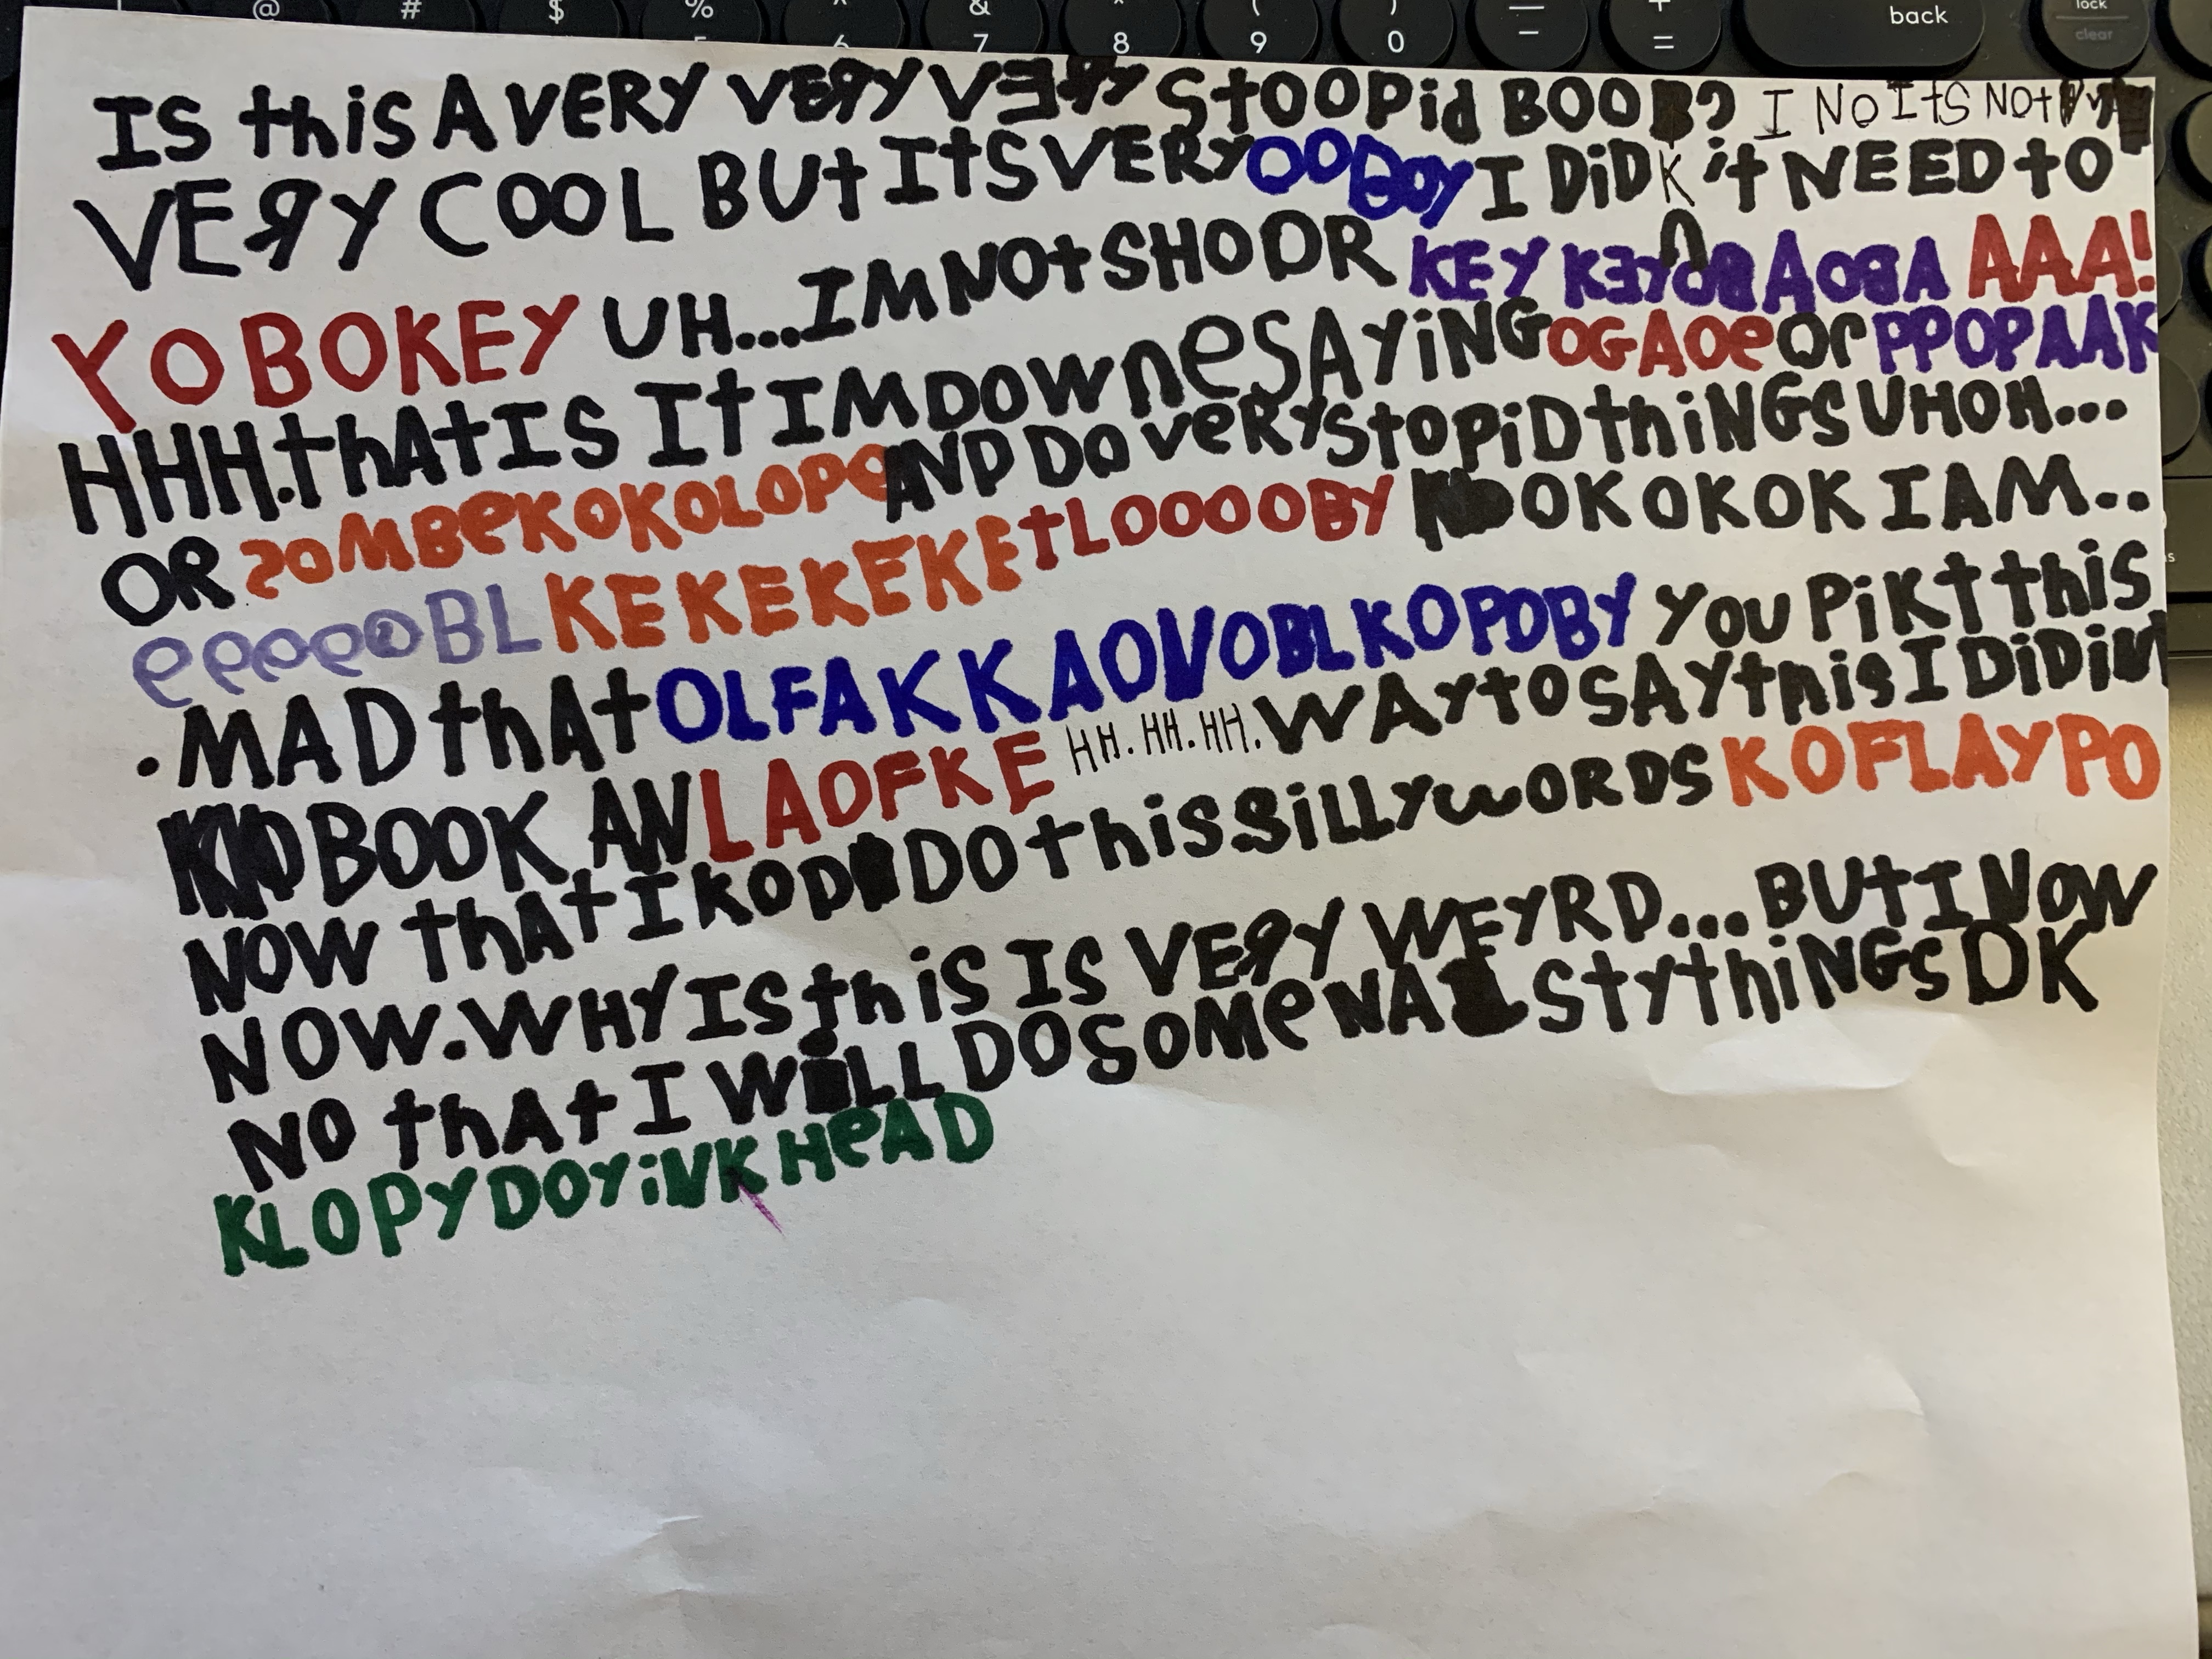 @ # $ % ^ & * ( ) — + back lock
5 6 7 8 9 0 - = clear
IS thiS A VERY VERY VERY StOOPid BOOB? I NO ItS NOt
VERY COOL BUt ItS VERY OOBOY I DiDK it NEED tO
YOBOKEY UH...IM NOt SHOOR KEY KEYOBAOBA AAA!
HHH.thAt IS It IM DOWNe SAYiNG OGAOe Or PPOPAAK
OR ZOMBeKOKOLOPO AND DO VeRY StOPiD thiNGS UHOH...
eeeeoBL KEKEKEKEtLOOOOBY OK OK OK I AM..
.MAD thAt OLFAKKAOVOBLKOPOBY YOU PiKt this
BOOK AN LAOFKE HH.HH.HH. WAY tO SAY this I DiDiN
NOW thAt I KOD DO this SiLLY WORDS KOFLAYPO
NOW.WHY IS this IS VERY WEYRD...BUt I NOW
NO thAt I WiLL DO SOMe NA StY thiNGS OK
KLOPYDOYiNKHeAD